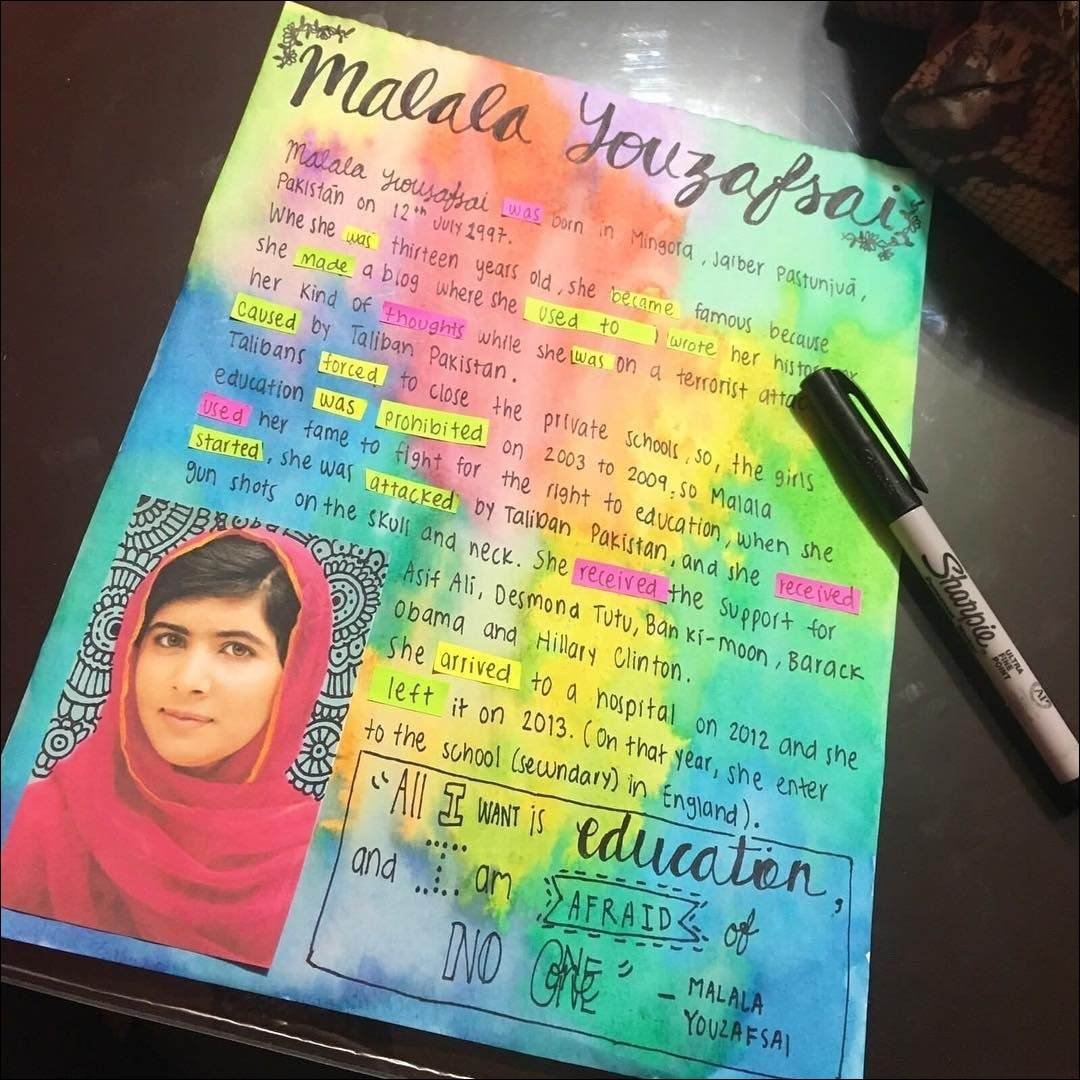 Malala Youzafsai
Malala Yousafsai was born in Mingora, Jaiber Pastunjuā,
Pakistān on 12th July 1997.
Whe she was thirteen years old, she became famous because
she made a blog where she used to wrote her
her kind of thoughts while she was on a terrorist
caused by Taliban Pakistan.
Talibans forced to close the private schools, so, the girls
education was prohibited on 2003 to 2009, so Malala
used her fame to fight for the right to education, when she
started, she was attacked by Taliban Pakistan, and she received
gun shots on the skull and neck. She received the support for
Asif Ali, Desmond Tutu, Ban ki-moon, Barack
Obama and Hillary Clinton.
She arrived to a hospital on 2012 and she
left it on 2013. (On that year, she enter
to the school (secundary) in England).
"All I WANT is education,
and I am AFRAID of
NO ONE"
- MALALA
YOUZAFSAI
Sharpie
ULTRA
FINE
POINT
AP